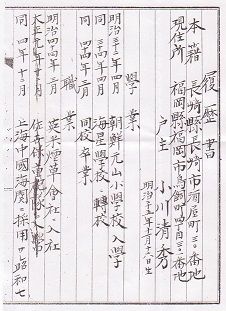 履歴書
本籍 長崎縣長崎市酒屋町三〇番地
現住所 福岡縣福岡市鳥飼町四丁目三〇番地
戸主 小川清秀
明治三十五年十二月十六日生
學業
明治三〇年四月 朝鮮元山小學校入學
同 四〇年四月 海星學校轉校
同 四四年三月 同校卒業
職業
明治四四年三月 英米煙草會社入社
大正九年十二月
同 四年十月 上海中國海関ニ採用 昭和七